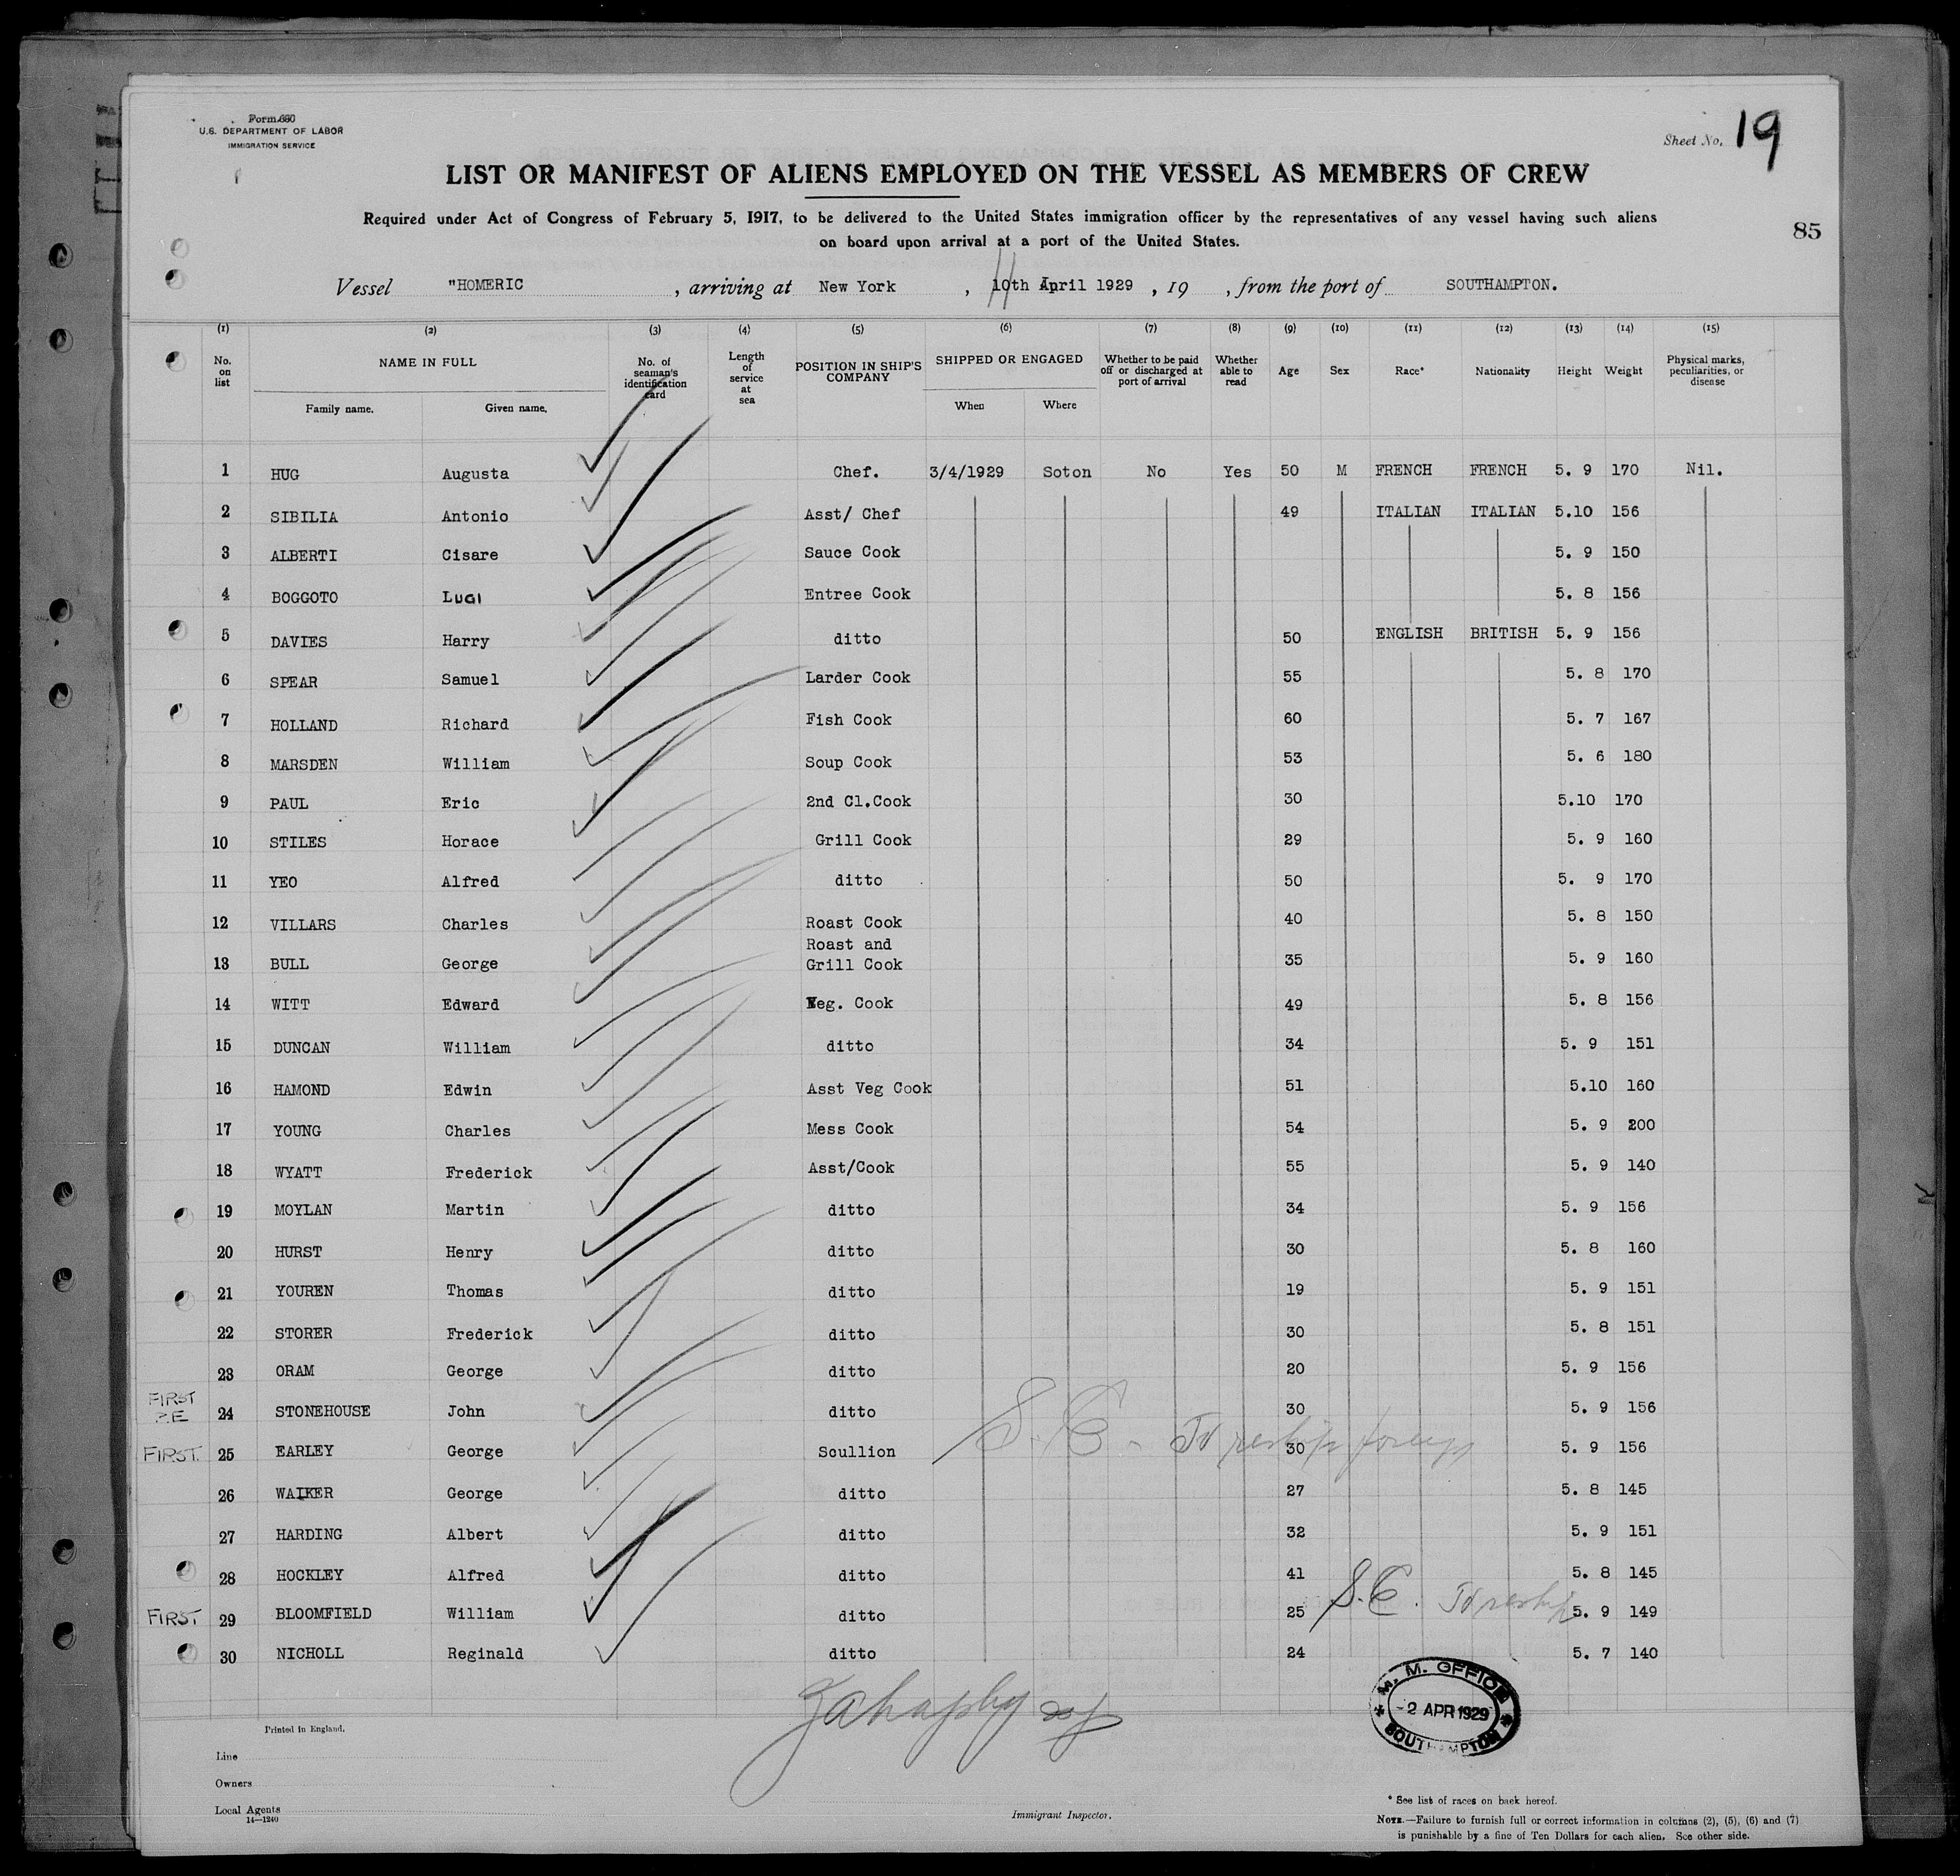 Form 680
U.S. DEPARTMENT OF LABOR
IMMIGRATION SERVICE
Sheet No. 19
LIST OR MANIFEST OF ALIENS EMPLOYED ON THE VESSEL AS MEMBERS OF CREW
Required under Act of Congress of February 5, 1917, to be delivered to the United States immigration officer by the representatives of any vessel having such aliens
on board upon arrival at a port of the United States.
85
Vessel "HOMERIC , arriving at New York , 10th April 1929 , 19 , from the port of SOUTHAMPTON.
11
(1) (2) (3) (4) (5) (6) (7) (8) (9) (10) (11) (12) (13) (14) (15)
No. on list NAME IN FULL No. of seaman's identification card Length of service at sea POSITION IN SHIP'S COMPANY SHIPPED OR ENGAGED Whether to be paid off or discharged at port of arrival Whether able to read Age Sex Race* Nationality Height Weight Physical marks, peculiarities, or disease
Family name. Given name. When Where
1 HUG Augusta Chef. 3/4/1929 Soton No Yes 50 M FRENCH FRENCH 5. 9 170 Nil.
2 SIBILIA Antonio Asst/ Chef 49 ITALIAN ITALIAN 5.10 156
3 ALBERTI Cisare Sauce Cook 5. 9 150
4 BOGGOTO LUGI Entree Cook 5. 8 156
5 DAVIES Harry ditto 50 ENGLISH BRITISH 5. 9 156
6 SPEAR Samuel Larder Cook 55 5. 8 170
7 HOLLAND Richard Fish Cook 60 5. 7 167
8 MARSDEN William Soup Cook 53 5. 6 180
9 PAUL Eric 2nd Cl.Cook 30 5.10 170
10 STILES Horace Grill Cook 29 5. 9 160
11 YEO Alfred ditto 50 5. 9 170
12 VILLARS Charles Roast Cook 40 5. 8 150
13 BULL George Roast and Grill Cook 35 5. 9 160
14 WITT Edward Veg. Cook 49 5. 8 156
15 DUNCAN William ditto 34 5. 9 151
16 HAMOND Edwin Asst Veg Cook 51 5.10 160
17 YOUNG Charles Mess Cook 54 5. 9 200
18 WYATT Frederick Asst/Cook 55 5. 9 140
19 MOYLAN Martin ditto 34 5. 9 156
20 HURST Henry ditto 30 5. 8 160
21 YOUREN Thomas ditto 19 5. 9 151
22 STORER Frederick ditto 30 5. 8 151
23 ORAM George ditto 20 5. 9 156
FIRST P.E 24 STONEHOUSE John ditto 30 5. 9 156
FIRST. 25 EARLEY George Scullion 30 5. 9 156
S.C - To reship foreign
26 WALKER George ditto 27 5. 8 145
27 HARDING Albert ditto 32 5. 9 151
28 HOCKLEY Alfred ditto 41 5. 8 145
FIRST 29 BLOOMFIELD William ditto 25 S.C. To reship 5. 9 149
30 NICHOLL Reginald ditto 24 5. 7 140
M. M. OFFICE
-2 APR 1929
SOUTHAMPTON
Printed in England.
Line
Owners
Local Agents
14—1240
Immigrant Inspector.
* See list of races on back hereof.
NOTE.—Failure to furnish full or correct information in columns (2), (5), (6) and (7)
is punishable by a fine of Ten Dollars for each alien. See other side.